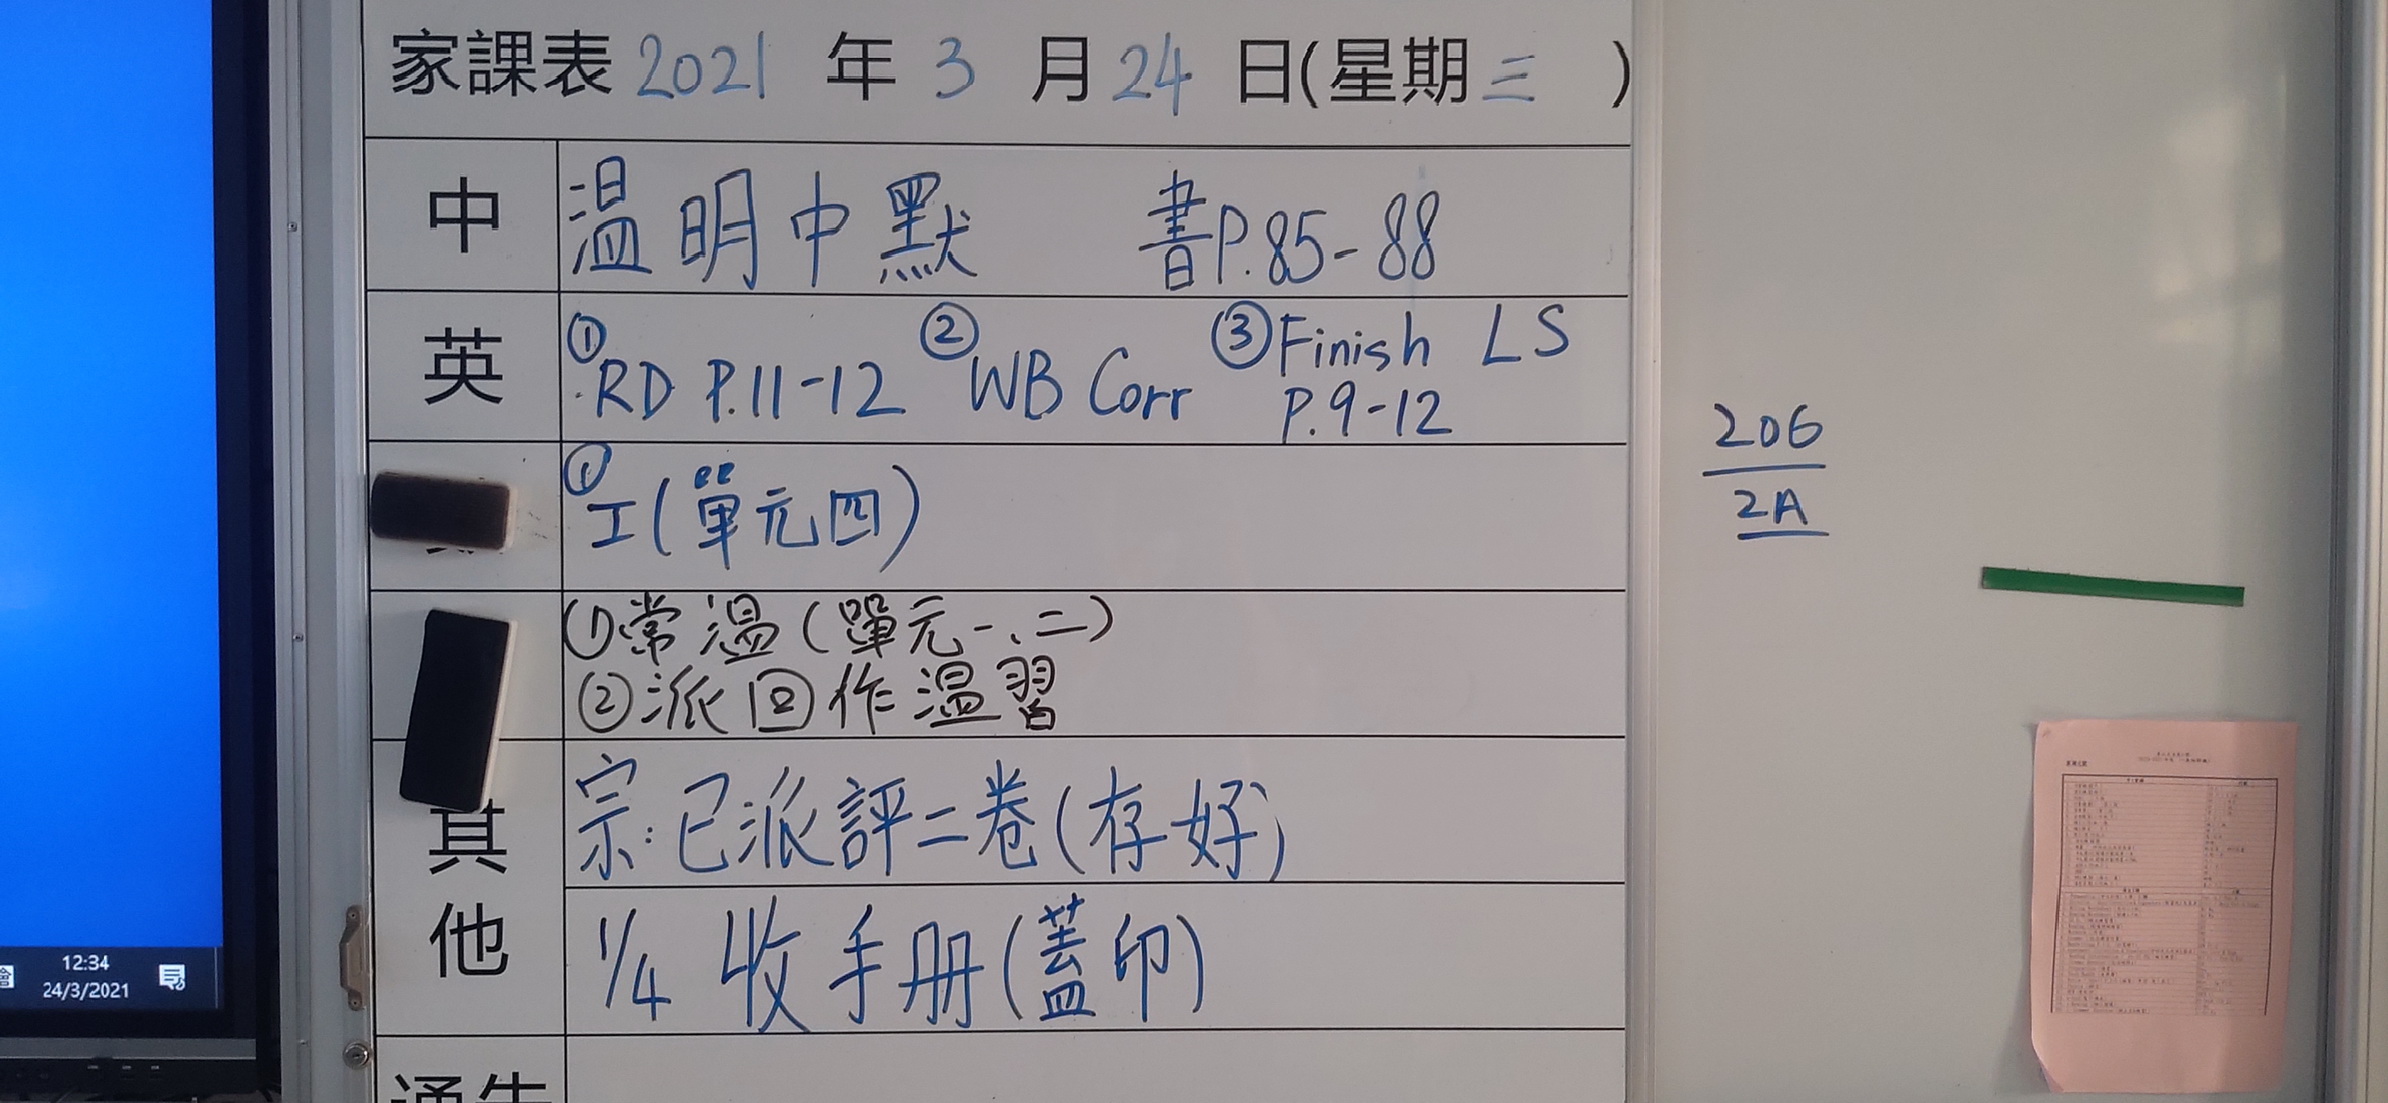 家課表 2021 年 3 月 24 日(星期三 )
中 溫明中默 書P.85-88
英 ①RD P.11-12 ②WB Corr ③Finish LS P.9-12
①工(單元四)
①常溫(單元一、二)
②派回作溫習
其他 宗:已派評二卷(存好)
1/4 收手册(蓋印)
通告
206
2A
12:34
24/3/2021